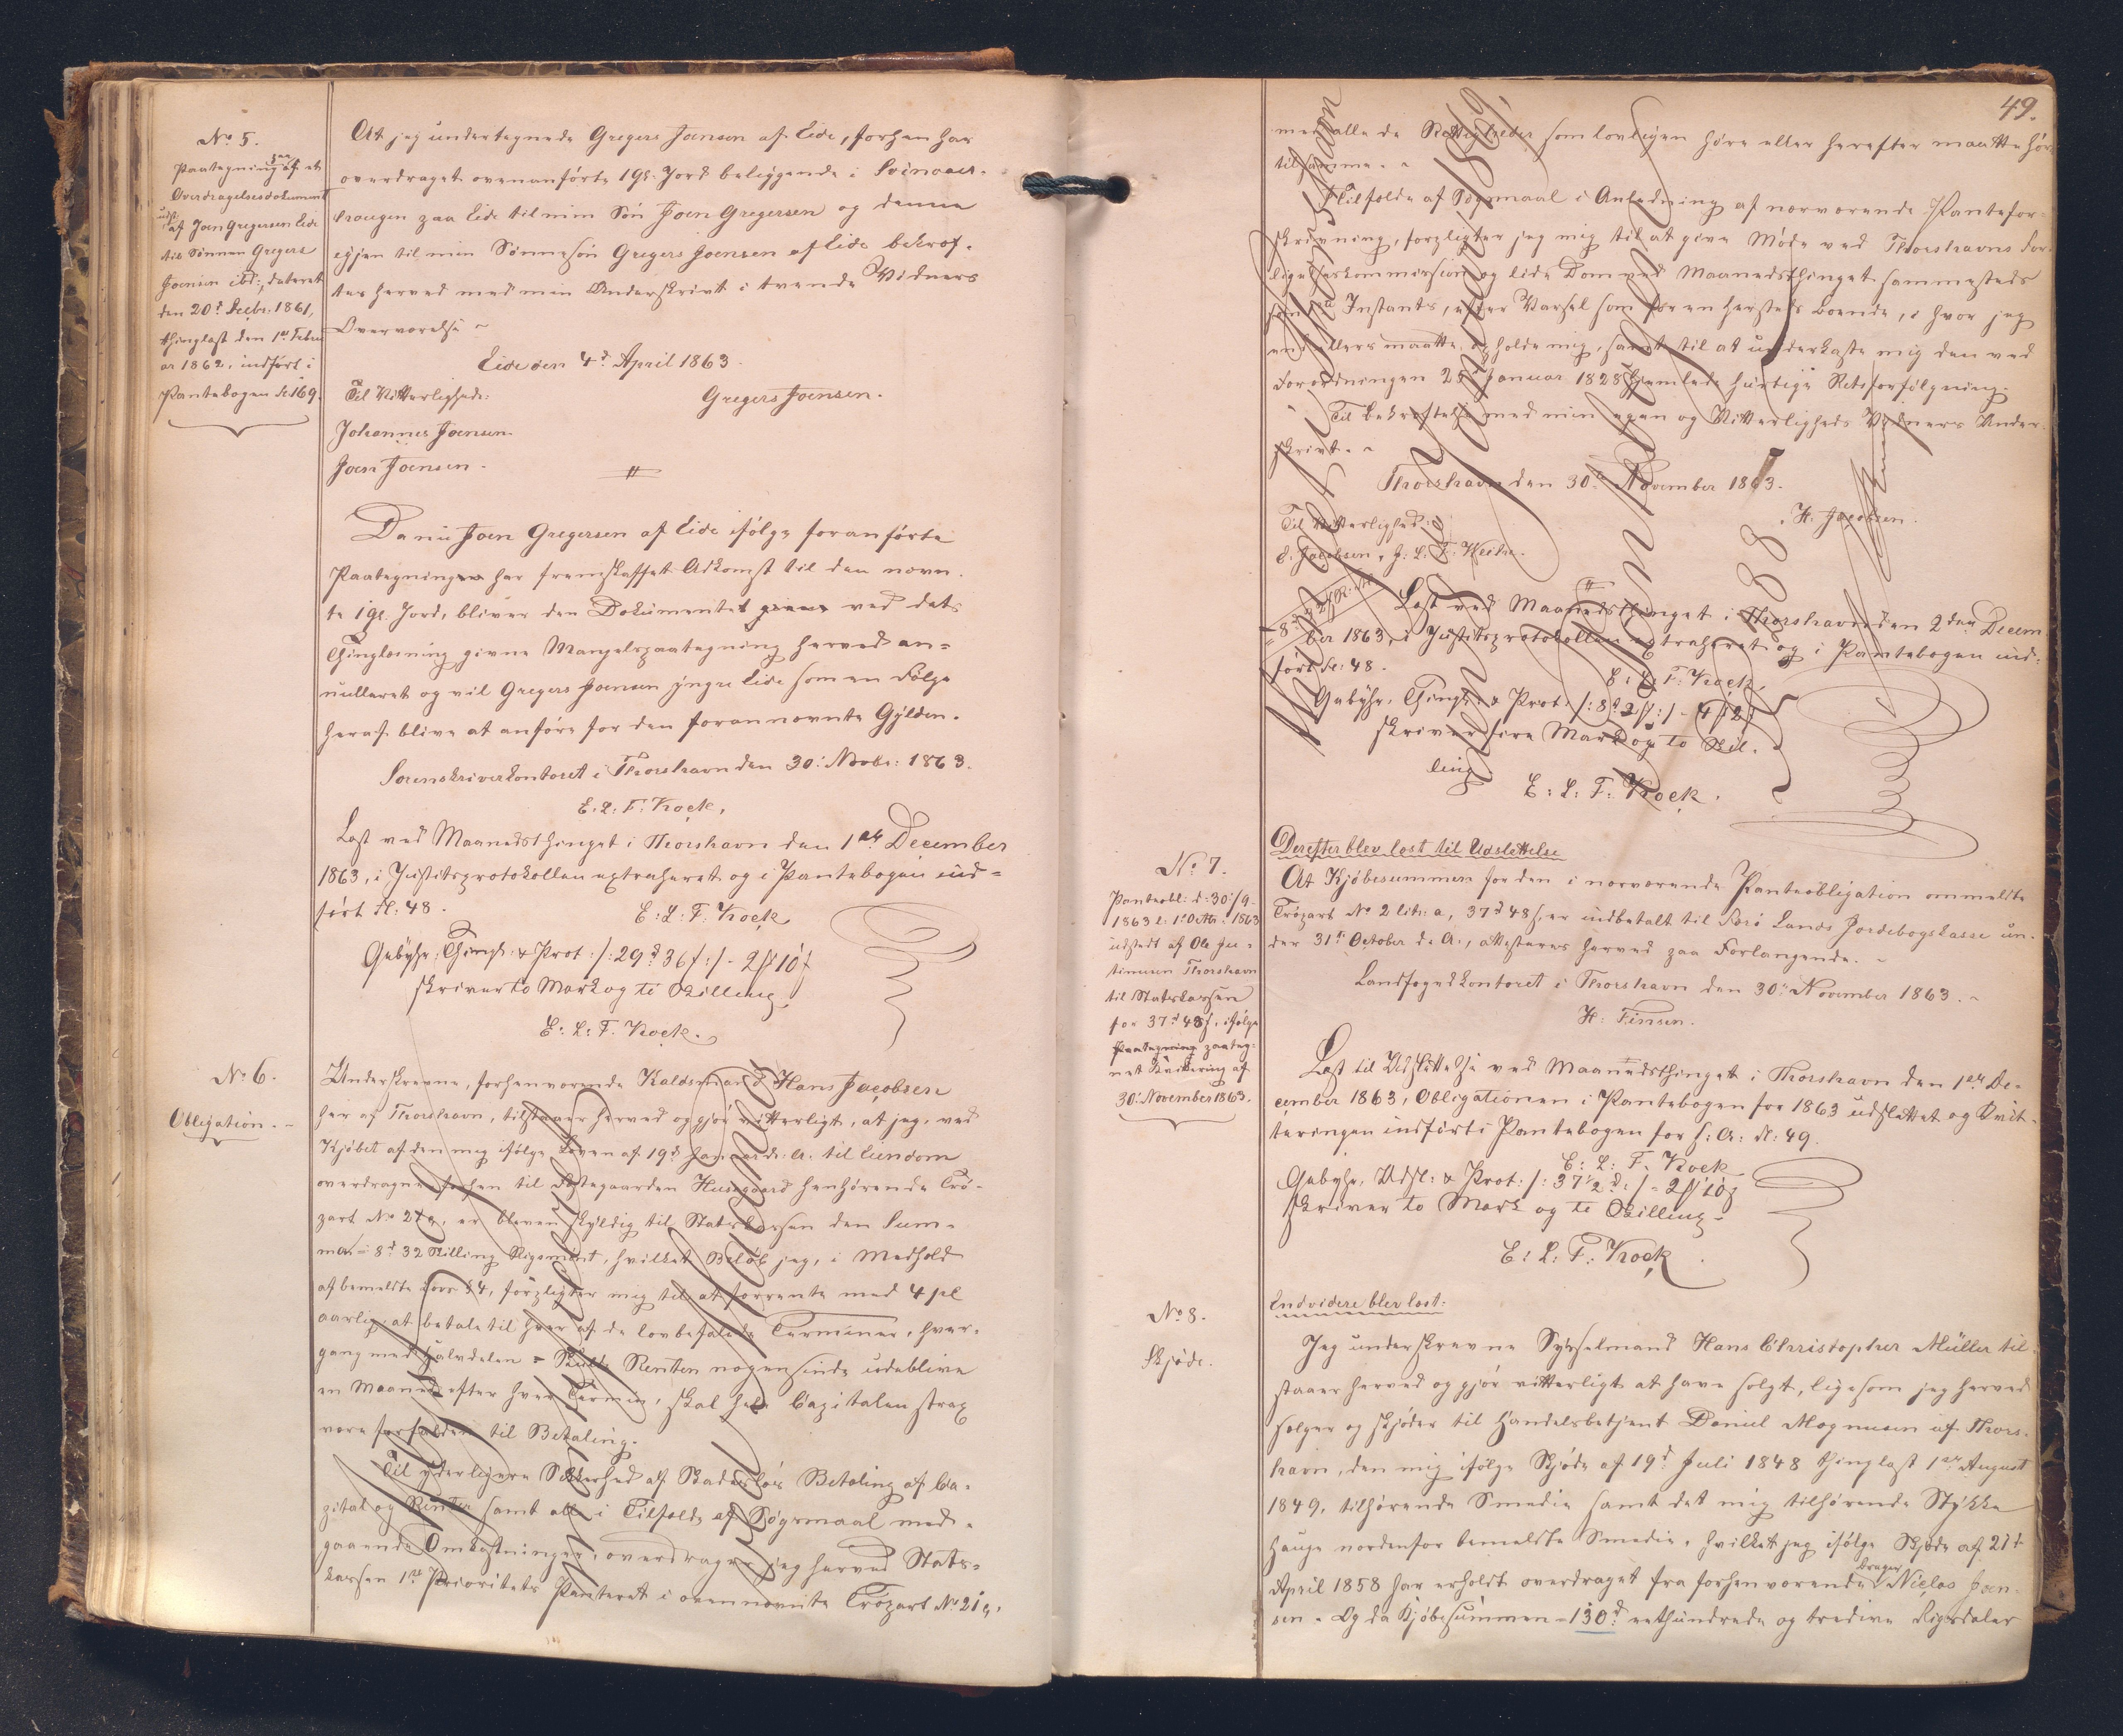 No 5.
Paategning paa et
Overdragelsesdokument
udst. af Joen Gregersen Eide
til Sønnen Gregers
Joensen ibd:, dateret
den 20d Decbr. 1861,
thinglæst den 1ste Febru
ar 1862, indført i
Pantebogen Fol 169.
At jeg undertegnede Gregers Joensen af Eide, forhen har
overdraget ovenanførte 1 Gl. Jord beliggende i
haugen paa Eide til min Søn Joen Gregersen og denne
igjen til min Sønnesøn Gregers Joensen af Eide bekræf-
tes herved med min Underskrivt i tvende Vidners
Overværelse ~
Eide den 4d April 1863.
Til Vitterlighed: Gregers Joensen.
Johannes Joensen.
Joen Joensen.
Da nu Joen Gregersen af Eide ifølge foranførte
Paategning har fremskaffet Adkomst til den nævn-
te 1 Gl. Jord, bliver den Dokumentet ved dets
Thinglæsning givne Mangelspaategning herved an-
nulleret og vil Gregers Joensen yngre Eide som en Følge
heraf blive at anføre for den forannævnte Gylden.
Sorenskriverkontoret i Thorshavn den 30. Novbr: 1863.
E. L. F. Kock.
Læst ved Maanedsthinget i Thorshavn den 1ste December
1863, i Justitsprotokollen extraheret og i Pantebogen ind-
ført Fl: 48.
E: L: F: Kock
Gebyhr, Thingl: & Prot: /: 29d 36 s :/ - 2 # 10 s
skriver to Mark og ti Skilling
E: L: F. Kock.
No 6.
Obligation. -
Underskrevne, forhenværende Kaldsmand Hans Jacobsen
her af Thorshavn, tilstaaer herved og gjør vitterligt, at jeg, ved
Kjøbet af den mig ifølge Loven af 19d Januar d: A. til Eiendom
overdragne, forhen til Fæstegaarden Husagaard henhørende Trø-
part No 21 a, er bleven skyldig til Statskassen den Sum-
ma = 8d 32 Skilling Rigsmønt, hvilket Beløb jeg, i Medhold
af bemeldte Lovs § 4, forpligter mig til at forrente med 4 pCt
aarlig, at betale til hver af de lovbefalede Terminer, hver-
gang med Halvdelen - Skulde Renten nogensinde udeblive
en Maaned efter hver Termin, skal hele Capitalen strax
være forfalden til Betaling.
Til yderligere Sikkerhed af Skadesløs Betaling af Ca-
pital og Renter samt alle i Tilfælde af Søgsmaal med-
gaaende Omkostninger, overdrager jeg herved Stats-
kassen 1ste Prioritets Panteret i ovennævnte Trøpart No 21 a,
49.
med alle de Rettigheder som lovligen høre eller herefter maatte høre
til samme. ~
I Tilfælde af Søgsmaal i Anledning af nærværende Pantefor-
skrivning, forpligter jeg mig til at give Møde ved Thorshavns For-
ligelseskommission og lide Dom ved Maanedsthinget sammesteds
som Instants, efter Varsel som for en hersteds boende, i hvor jeg
end ellers maatte opholde mig, samt til at underkaste mig den ved
Forordningen 28 Januar 1828 hjemlede hurtige Retsforfølgning.
Til Bekræftelse med min egen og Vitterligheds Vidners Under-
skrivt. ~
Thorshavn den 30te November 1863.
H. Jacobsen.
Til Vitterlighed:
Læst ved Maanedsthinget i Thorshavn den 2den Decem-
ber 1863, i Justitsprotokollen extraheret og i Pantebogen ind-
ført Fl: 48.
E: L: F: Kock.
Gebyhr, Thingl: & Prot: /: 8d :/ - 4 # 2 s
skriver fire Mark og to Skil-
ling
E: L: F: Kock.
No 7.
Panteobl: d: 30/9
1863 l: 1 Octbr: 1863
udstedt af Ole Ju-
stinusen Thorshavn
til Statskassen
for 37d 48 s, ifølge
paateg-
net Kvittering af
30. November 1863.
Derefter blev læst til Udslettelse
At Kjøbesummen for den i nærværende Panteobligation ommeldte
Trøpart No 2 litr: a, 37d 48 s, er indbetalt til Færø Lands Jordebogskasse un-
der 31te October d. A., attesteres herved paa Forlangende. ~
Landfogedkontoret i Thorshavn den 30. November 1863. ~
H: Finsen.
Læst til Udslettelse ved Maanedsthinget i Thorshavn den 1ste De-
cember 1863, Obligationen i Pantebogen for 1863 udslettet og Kvit-
teringen indført i Pantebogen for s: A: Fl: 49.
E: L: F. Kock
Gebyhr, Udsl: & Prot: /: 37½d :/ - 2 # 10 s
skriver to Mark og ti Skilling -
E: L: F: Kock.
No 8.
Skjøde.
Endvidere blev læst:
Jeg underskrevne Sysselmand Hans Christopher Müller til-
staaer herved og gjør vitterligt at have solgt, ligesom jeg herved
sælger og skjøder til Handelsbetjent Daniel Magnusen af Thors-
havn, den mig ifølge Skjøde af 19d Juli 1848 thinglæst 1ste August
1849, tilhørende Smedie samt det mig tilhørende Stykke
Hauge nordenfor bemeldte Smedie, hvilket jeg ifølge Skjøde af 21d
April 1858 har erholdt overdraget fra forhenværende Drager Niclas Joen-
sen. Og da Kjøbesummen = 130d eethundrede og tredive Rigsdaler